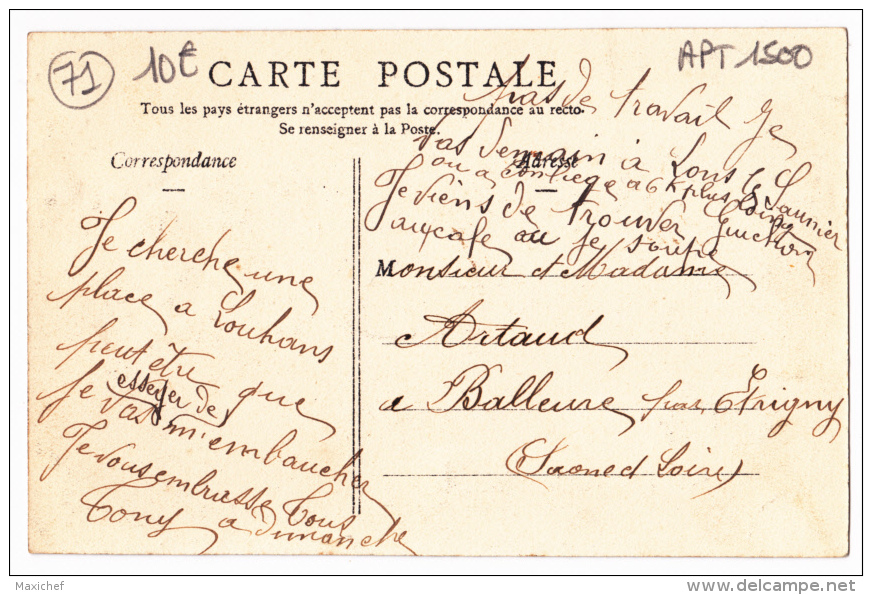 71
10€
APT 1500
CARTE POSTALE
Tous les pays étrangers n'acceptent pas la correspondance au recto.
Se renseigner à la Poste.
Correspondance
Adresse
Je cherche une
place a Louhans
peut être que
Je vas esseyer de
m'embaucher
Je vous embrasse Tous
Tony a dimanche
pas de travail Je
vas demain à Lons le Saunier
ou a Conliege a 6 K plus loing
Je viens de trouver Guichon
au cafe ou je soupe
Monsieur et Madame
Artaud
a Balleure par Etrigny
(Saone et Loire)
Maxichef
delcampe.net